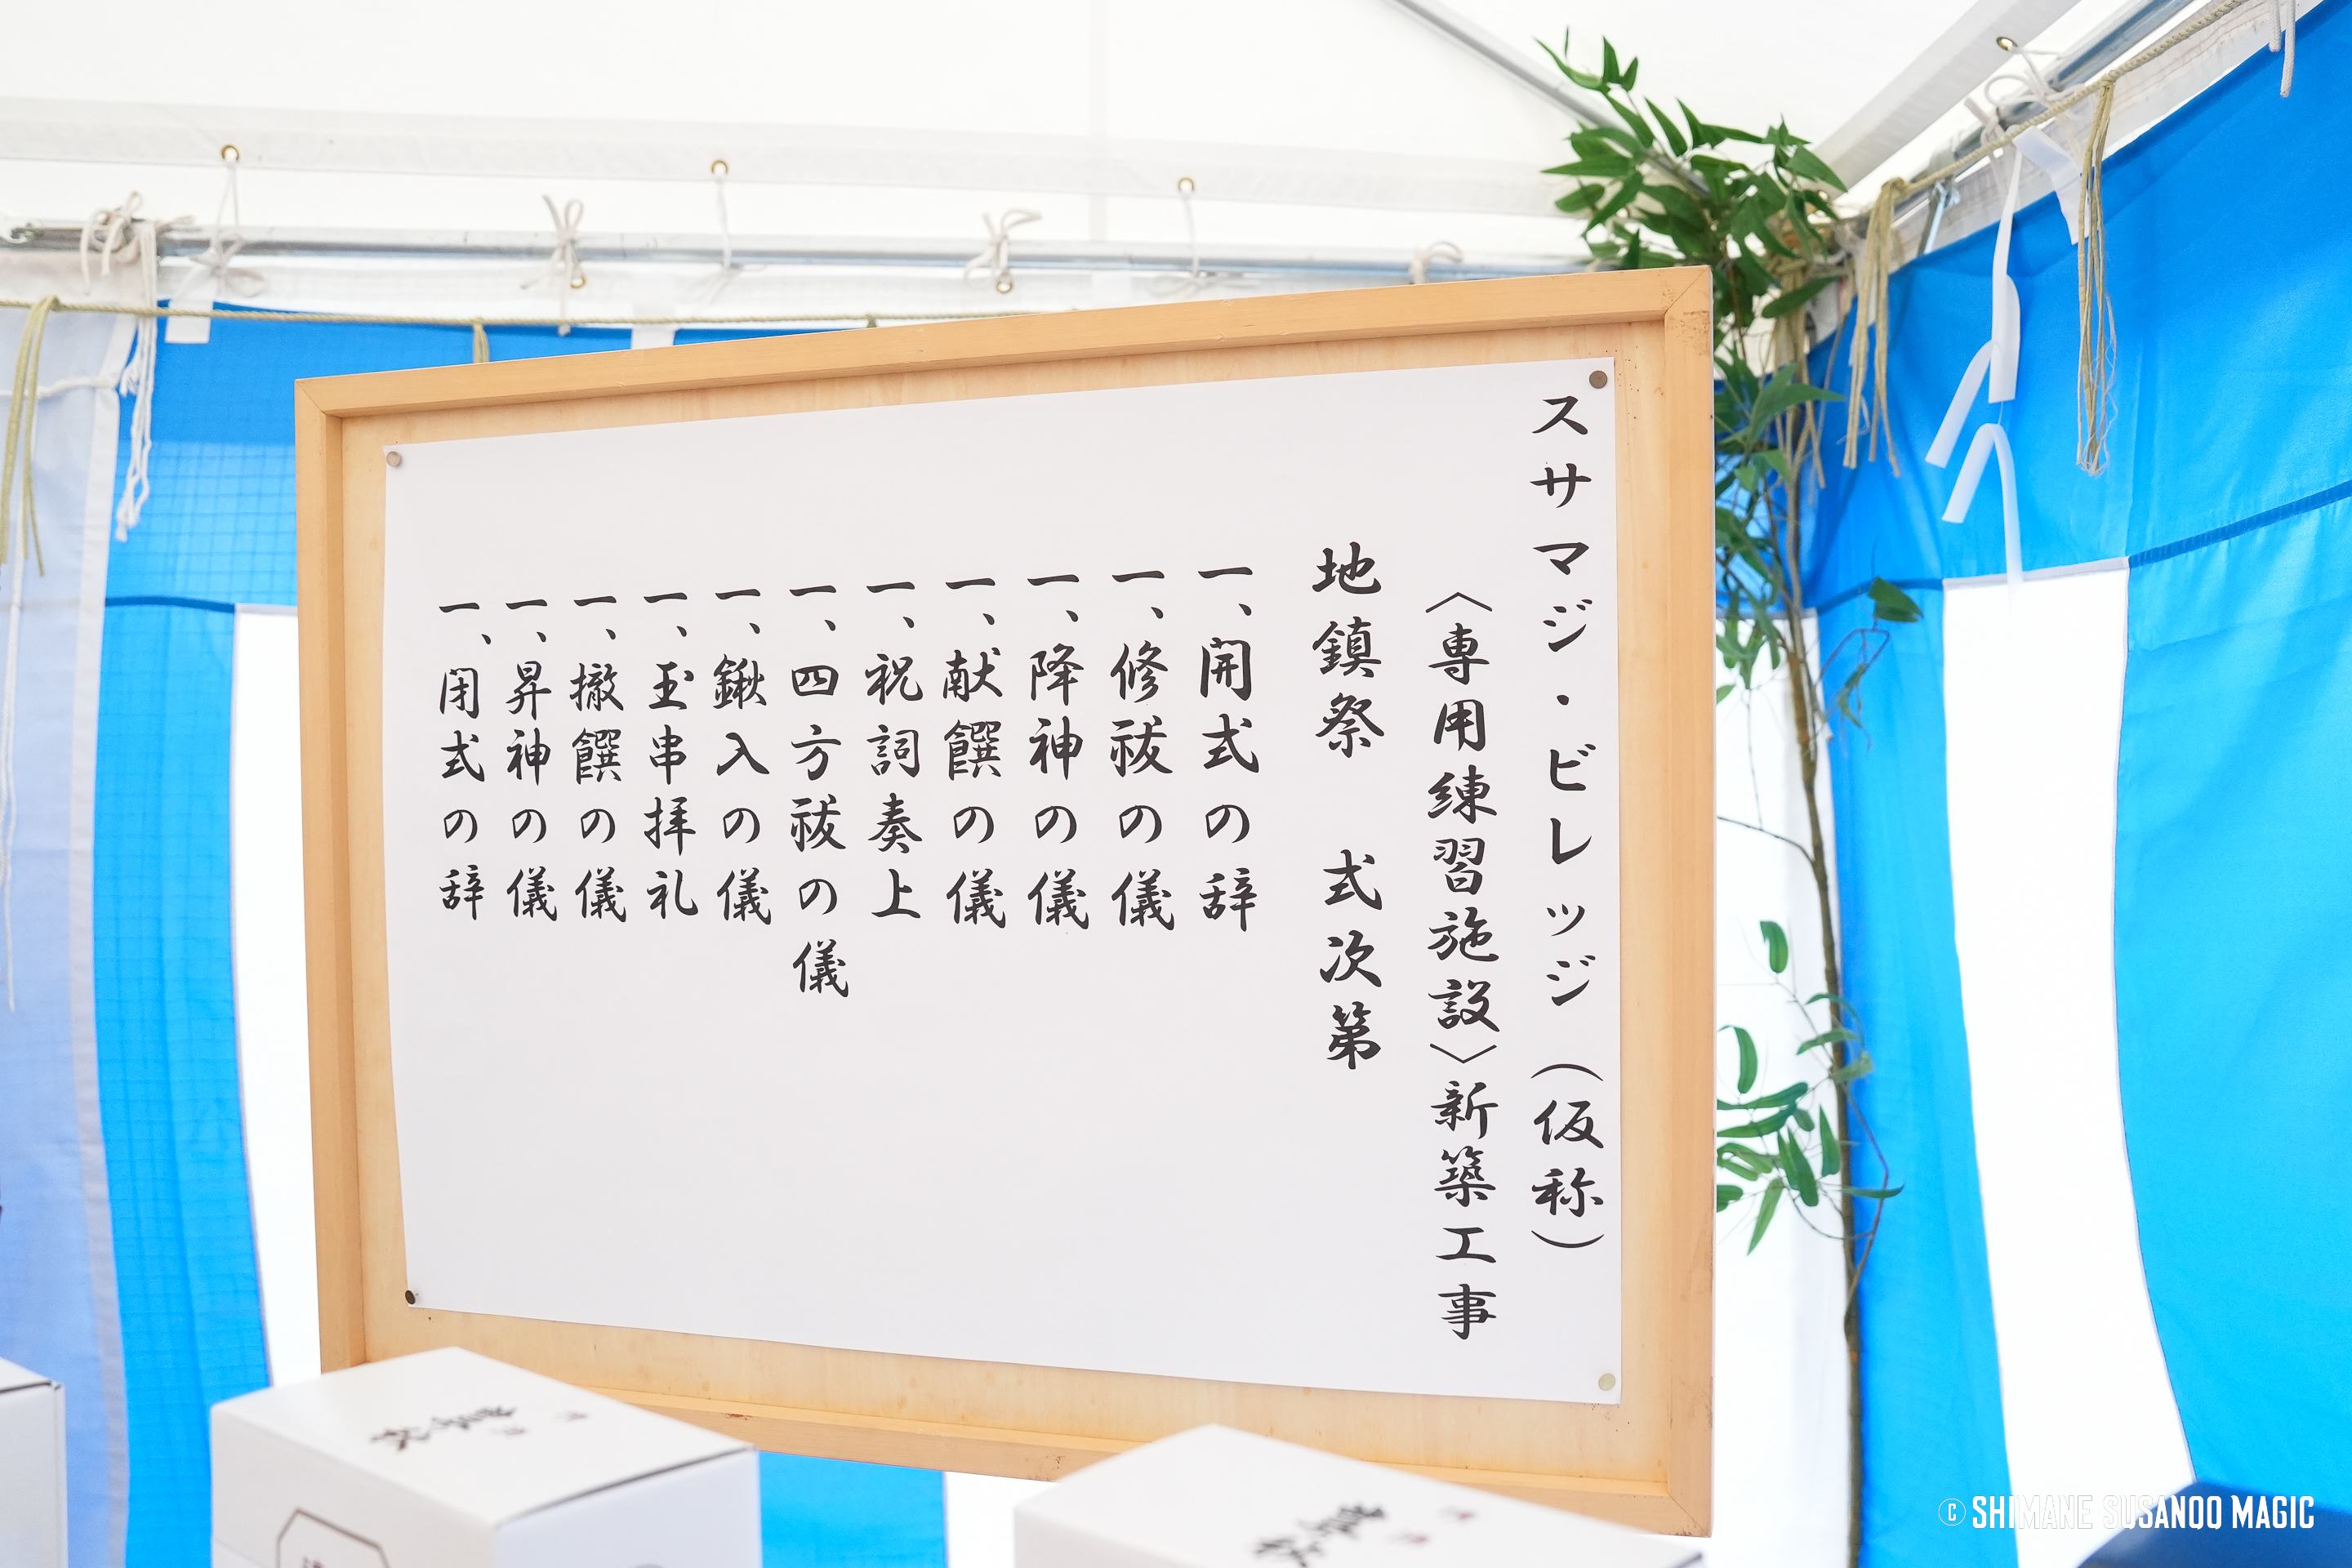 スサマジ・ビレッジ（仮称）
〈専用練習施設〉新築工事
地鎮祭　式次第
一、開式の辞
一、修祓の儀
一、降神の儀
一、献饌の儀
一、祝詞奏上
一、四方祓の儀
一、鍬入の儀
一、玉串拝礼
一、撤饌の儀
一、昇神の儀
一、閉式の辞
© SHIMANE SUSANOO MAGIC